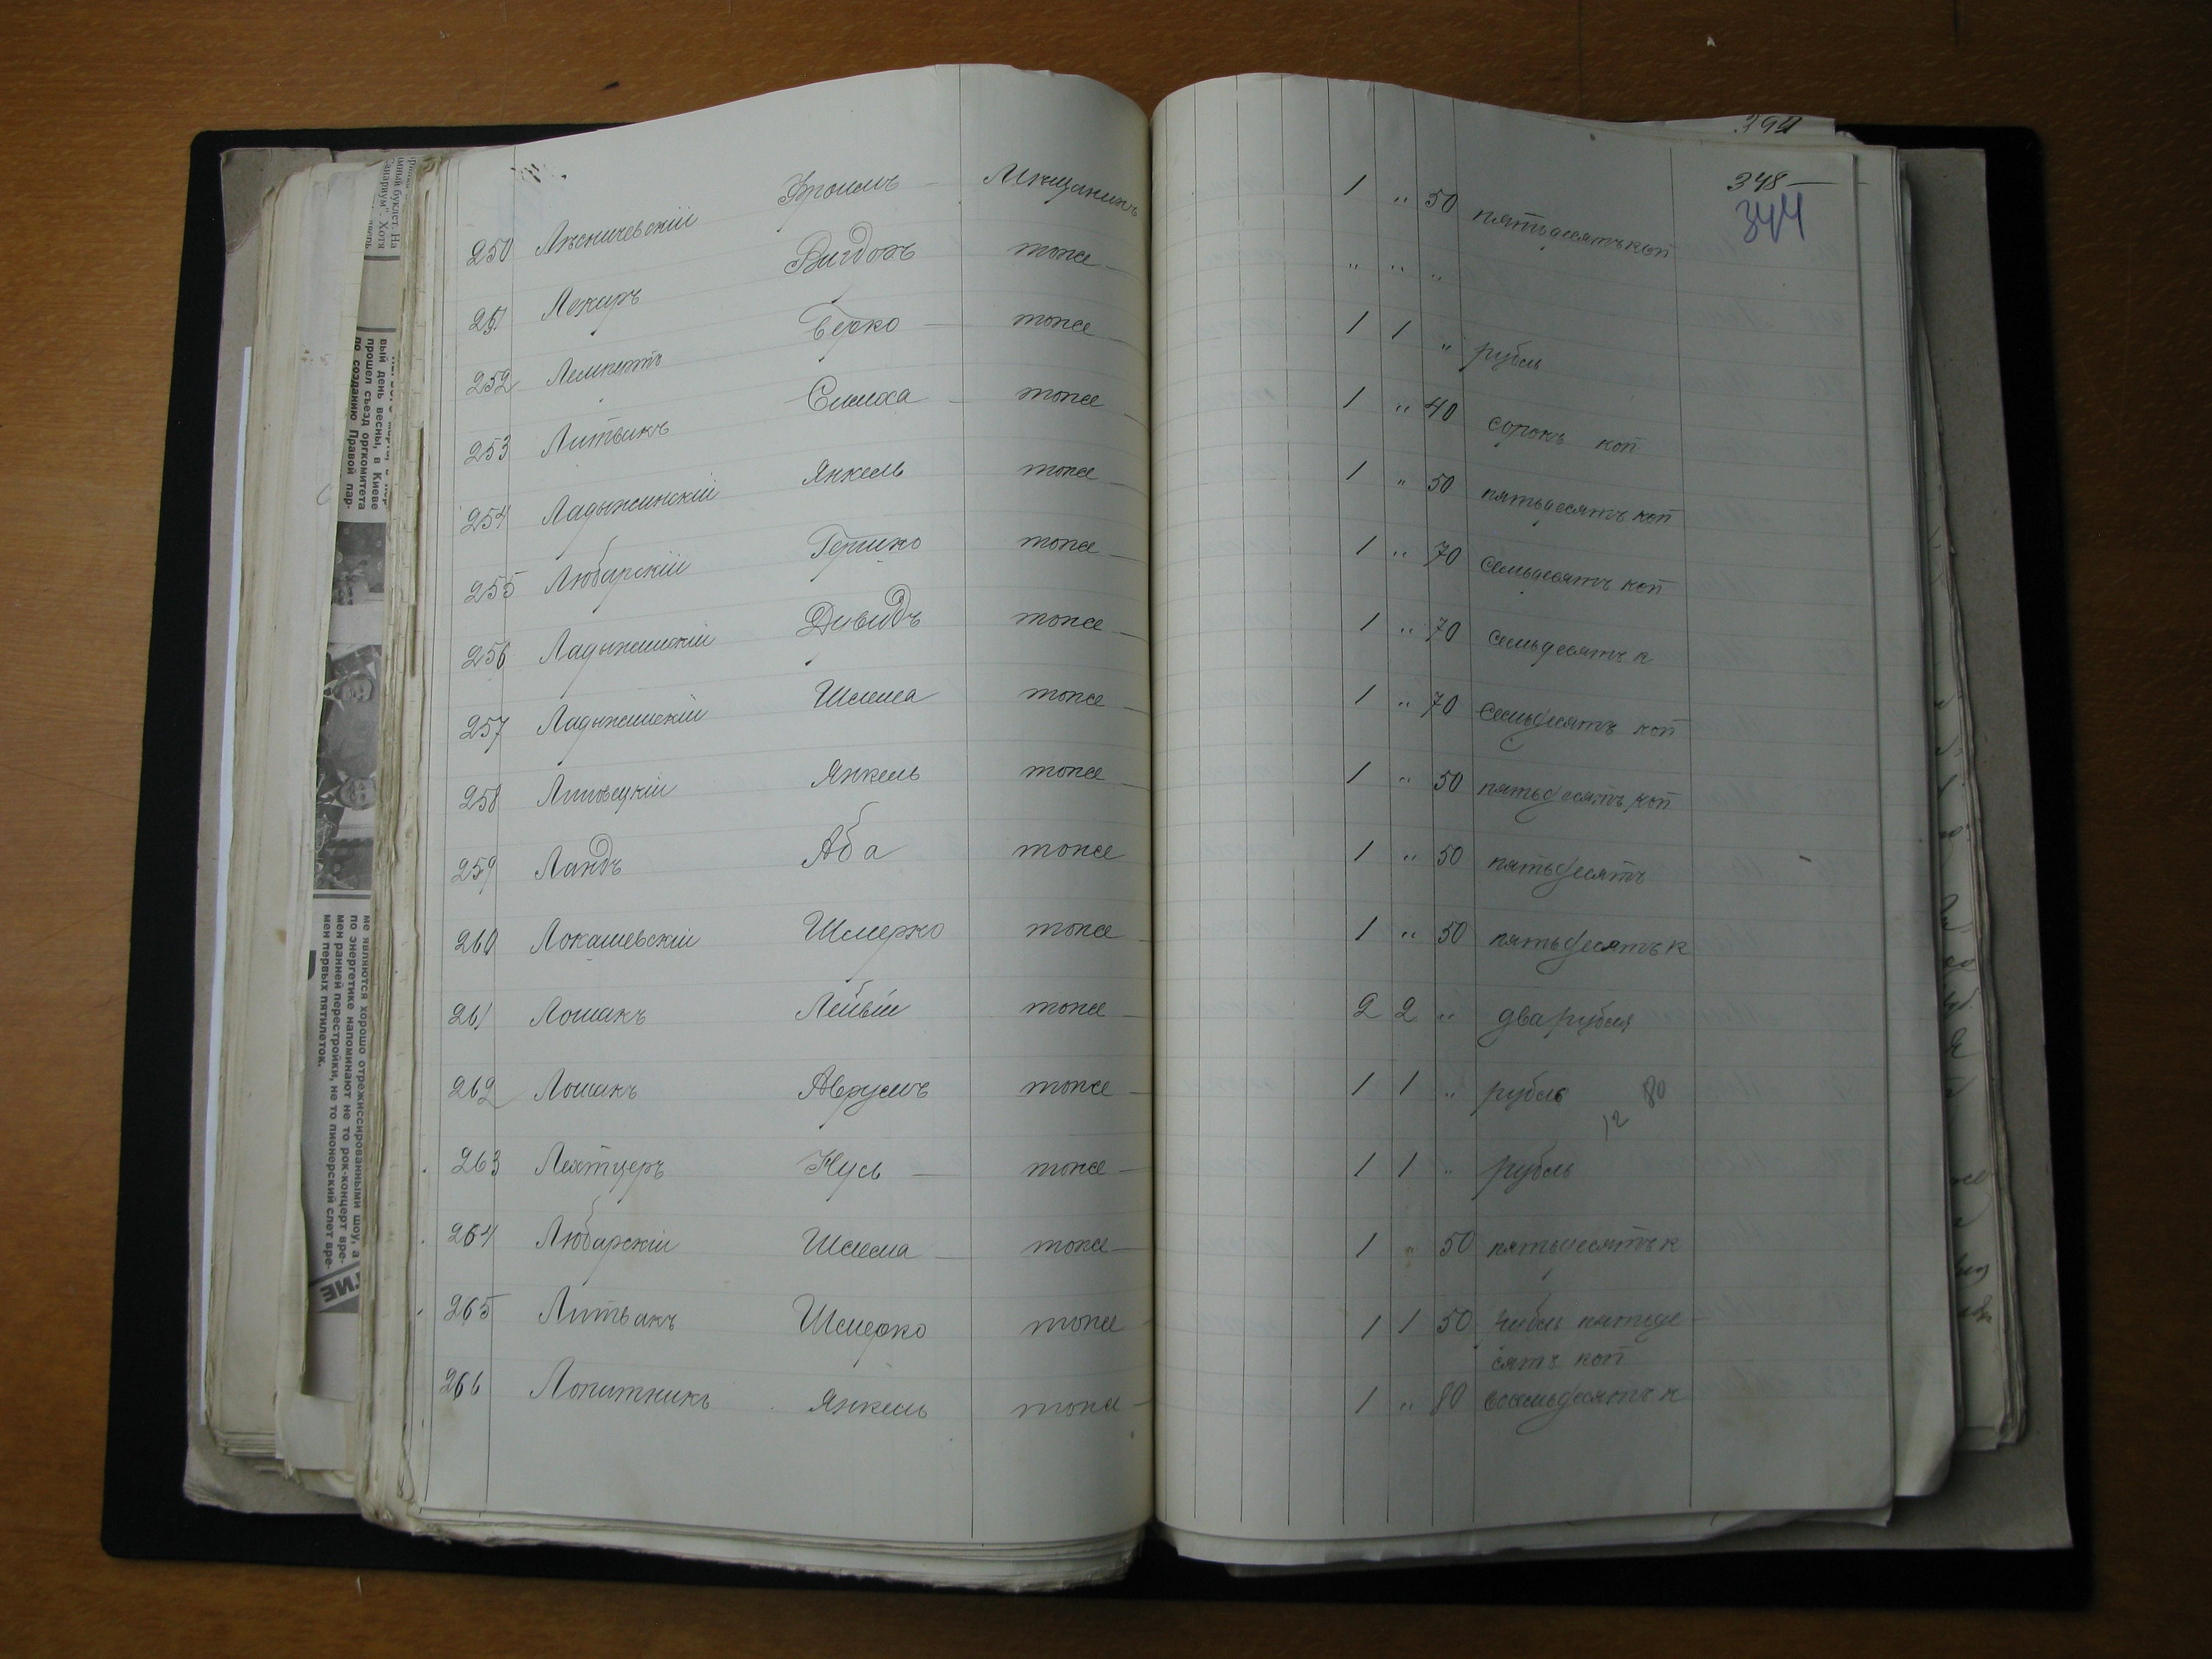 394
348 —
344
250 Лѣсничевскій Фроимъ — Мѣщанинъ 1 " 50 пятьдесятъ коп
251 Лекарь Вигдоръ тоже — " " "
252 Лемпертъ Берко — тоже — 1 1 " рубль
253 Литвакъ Симха — тоже — 1 " 40 сорокъ коп
254 Ладыжинскій Янкель тоже — 1 " 50 пятьдесятъ коп
255 Любарскій Гершко тоже — 1 " 70 семьдесятъ коп
256 Ладыжинскій Давидъ тоже — 1 " 70 семьдесятъ к
257 Ладыжинскій Шлема тоже — 1 " 70 семьдесятъ коп
258 Липовецкій Янкель тоже — 1 " 50 пятьдесятъ коп
259 Ландъ Аба тоже 1 " 50 пятьдесятъ
260 Локашевскій Шмерко тоже — 1 " 50 пятьдесятъ к
261 Лошакъ Лейбиш тоже — 2 2 " два рубля
262 Лошакъ Аврумъ тоже — 1 1 " рубль 80
12
263 Лехтцеръ Нусь — тоже — 1 1 " рубль
264 Любарскій Шлема — тоже — 1 " 50 пятьдесятъ к
265 Литвакъ Шмерко тоже 1 1 50 рубль пятьде-
сятъ коп
266 Лопатникъ Янкель тоже — 1 " 80 восемьдесятъ к
вый день весны, в Киеве
прошел съезд оргкомитета
по созданию Правой пар-
ме являются хорошо отрежиссированными шоу, а
по энергетике напоминают не то рок-концерт вре-
мен ранней перестройки, не то пионерский слет вре-
мен первых пятилеток.